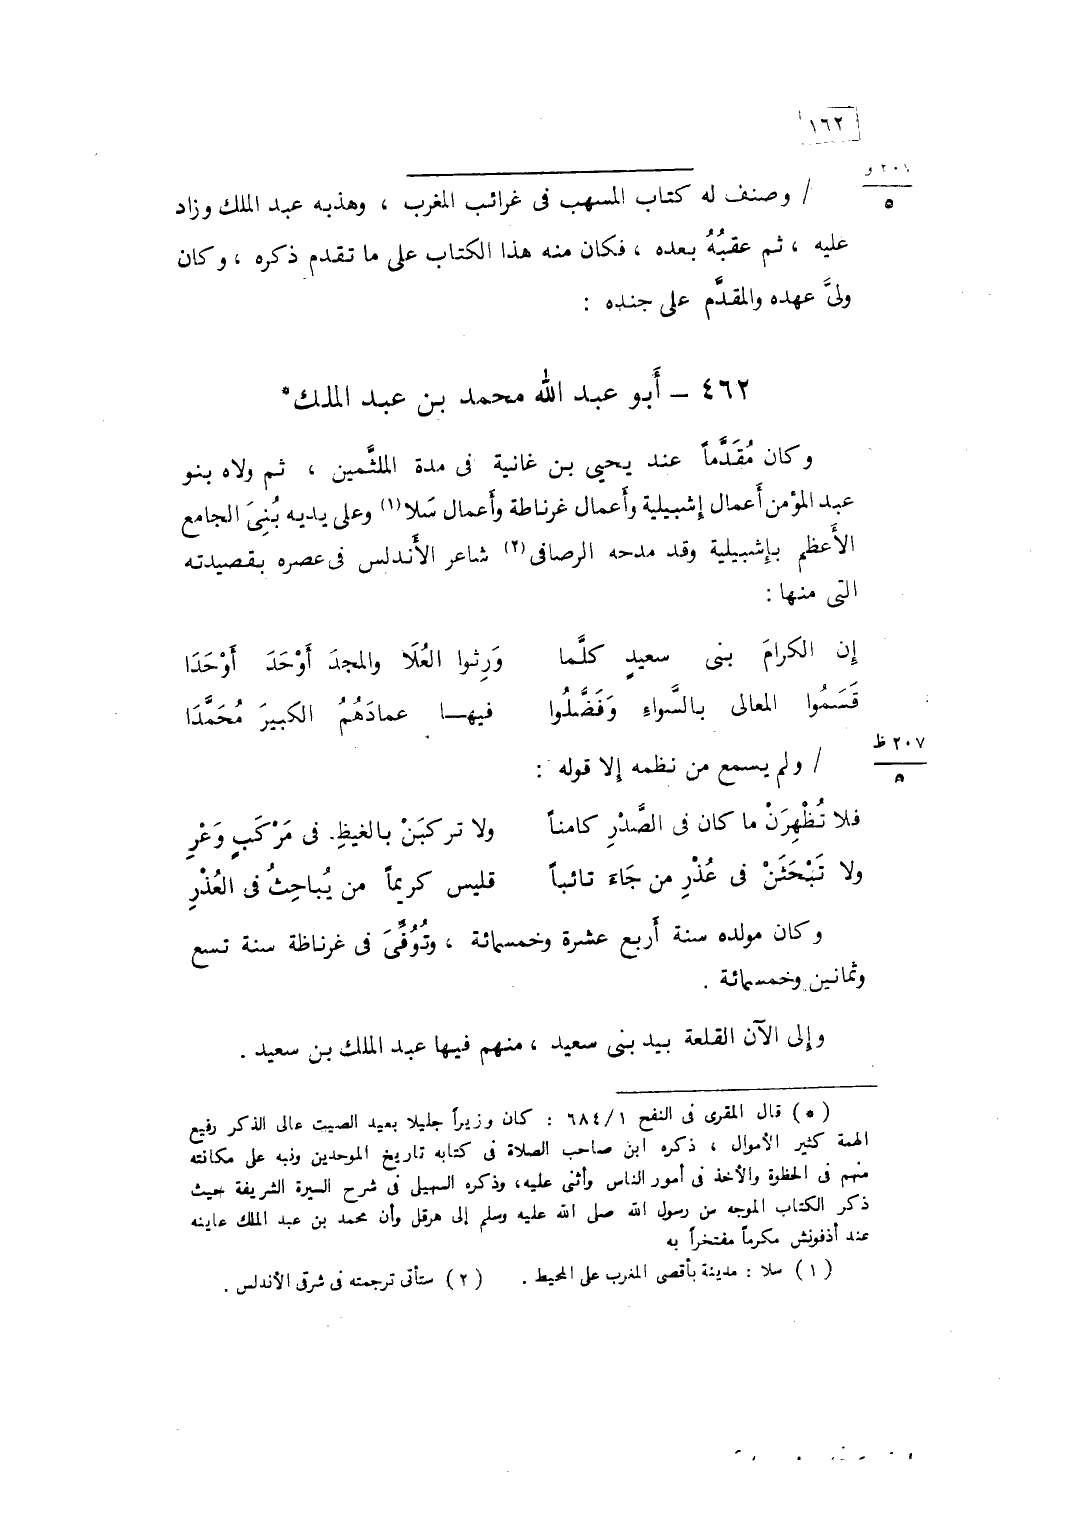 ١٦٢
/ وصنف له كتاب المسهب فى غرائب المغرب ، وهذبه عبد الملك وزاد
عليه ، ثم عقبُهُ بعده ، فكان منه هذا الكتاب على ما تقدم ذكره ، وكان
ولىَّ عهده والمقدَّم على جنده :
٤٦٢ – أَبو عبد الله محمد بن عبد الملك*
وكان مُقَدَّماً عند يحيى بن غانية فى مدة الملثَّمين ، ثم ولاه بنو
عبد المؤمن أَعمال إشبيلية وأَعمال غرناطة وأَعمال سَلا(١) وعلى يديه بُنِىَ الجامع
الأَعظم بإشبيلية وقد مدحه الرصافى(٢) شاعر الأَندلس فى عصره بقصيدته
التى منها :
إِن الكرامَ بنى سعيدٍ كلَّما وَرِثوا العُلَا والمجدَ أَوْحَدَ أَوْحَدَا
قَسَمُوا المعالى بالسَّواءِ وَفَضَّلُوا فيهـا عمادَهُمُ الكبيرَ مُحَمَّدَا
٢٠٧ ظ
٥
/ ولم يسمع من نظمه إلا قوله :
فلا تُظْهِرَنْ ما كان فى الصَّدْرِ كامناً ولا تركبَنْ بالغيظِ. فى مَرْكَبٍ وَعْرِ
ولا تَبْحَثَنْ فى عُذْرِ من جَاءَ تائباً قليس كريماً من يُباحِثُ فى العُذْرِ
وكان مولده سنة أَربع عشرة وخمسمائة ، وتُوُفِّىَ فى غرناطة سنة تسع
وثمانين وخمسمائة .
وإلى الآن القلعة بيد بنى سعيد ، منهم فيها عبد الملك بن سعيد .
(*) قال المقرى فى النفح ١/٦٨٤ : كان وزيراً جليلا بعيد الصيت عالى الذكر رفيع
الهمة كثير الأموال ، ذكره ابن صاحب الصلاة فى كتابه تاريخ الموحدين ونبه على مكانته
منهم فى الحظوة والأخذ فى أمور الناس وأثنى عليه، وذكره السهيل فى شرح السيرة الشريفة حيث
ذكر الكتاب الموجه من رسول الله صلى الله عليه وسلم إلى هرقل وأن محمد بن عبد الملك عاينه
عند أذفونش مكرماً مفتخراً به
(١) سلا : مدينة بأقصى المغرب على المحيط . (٢) ستأتى ترجمته فى شرقى الأندلس .